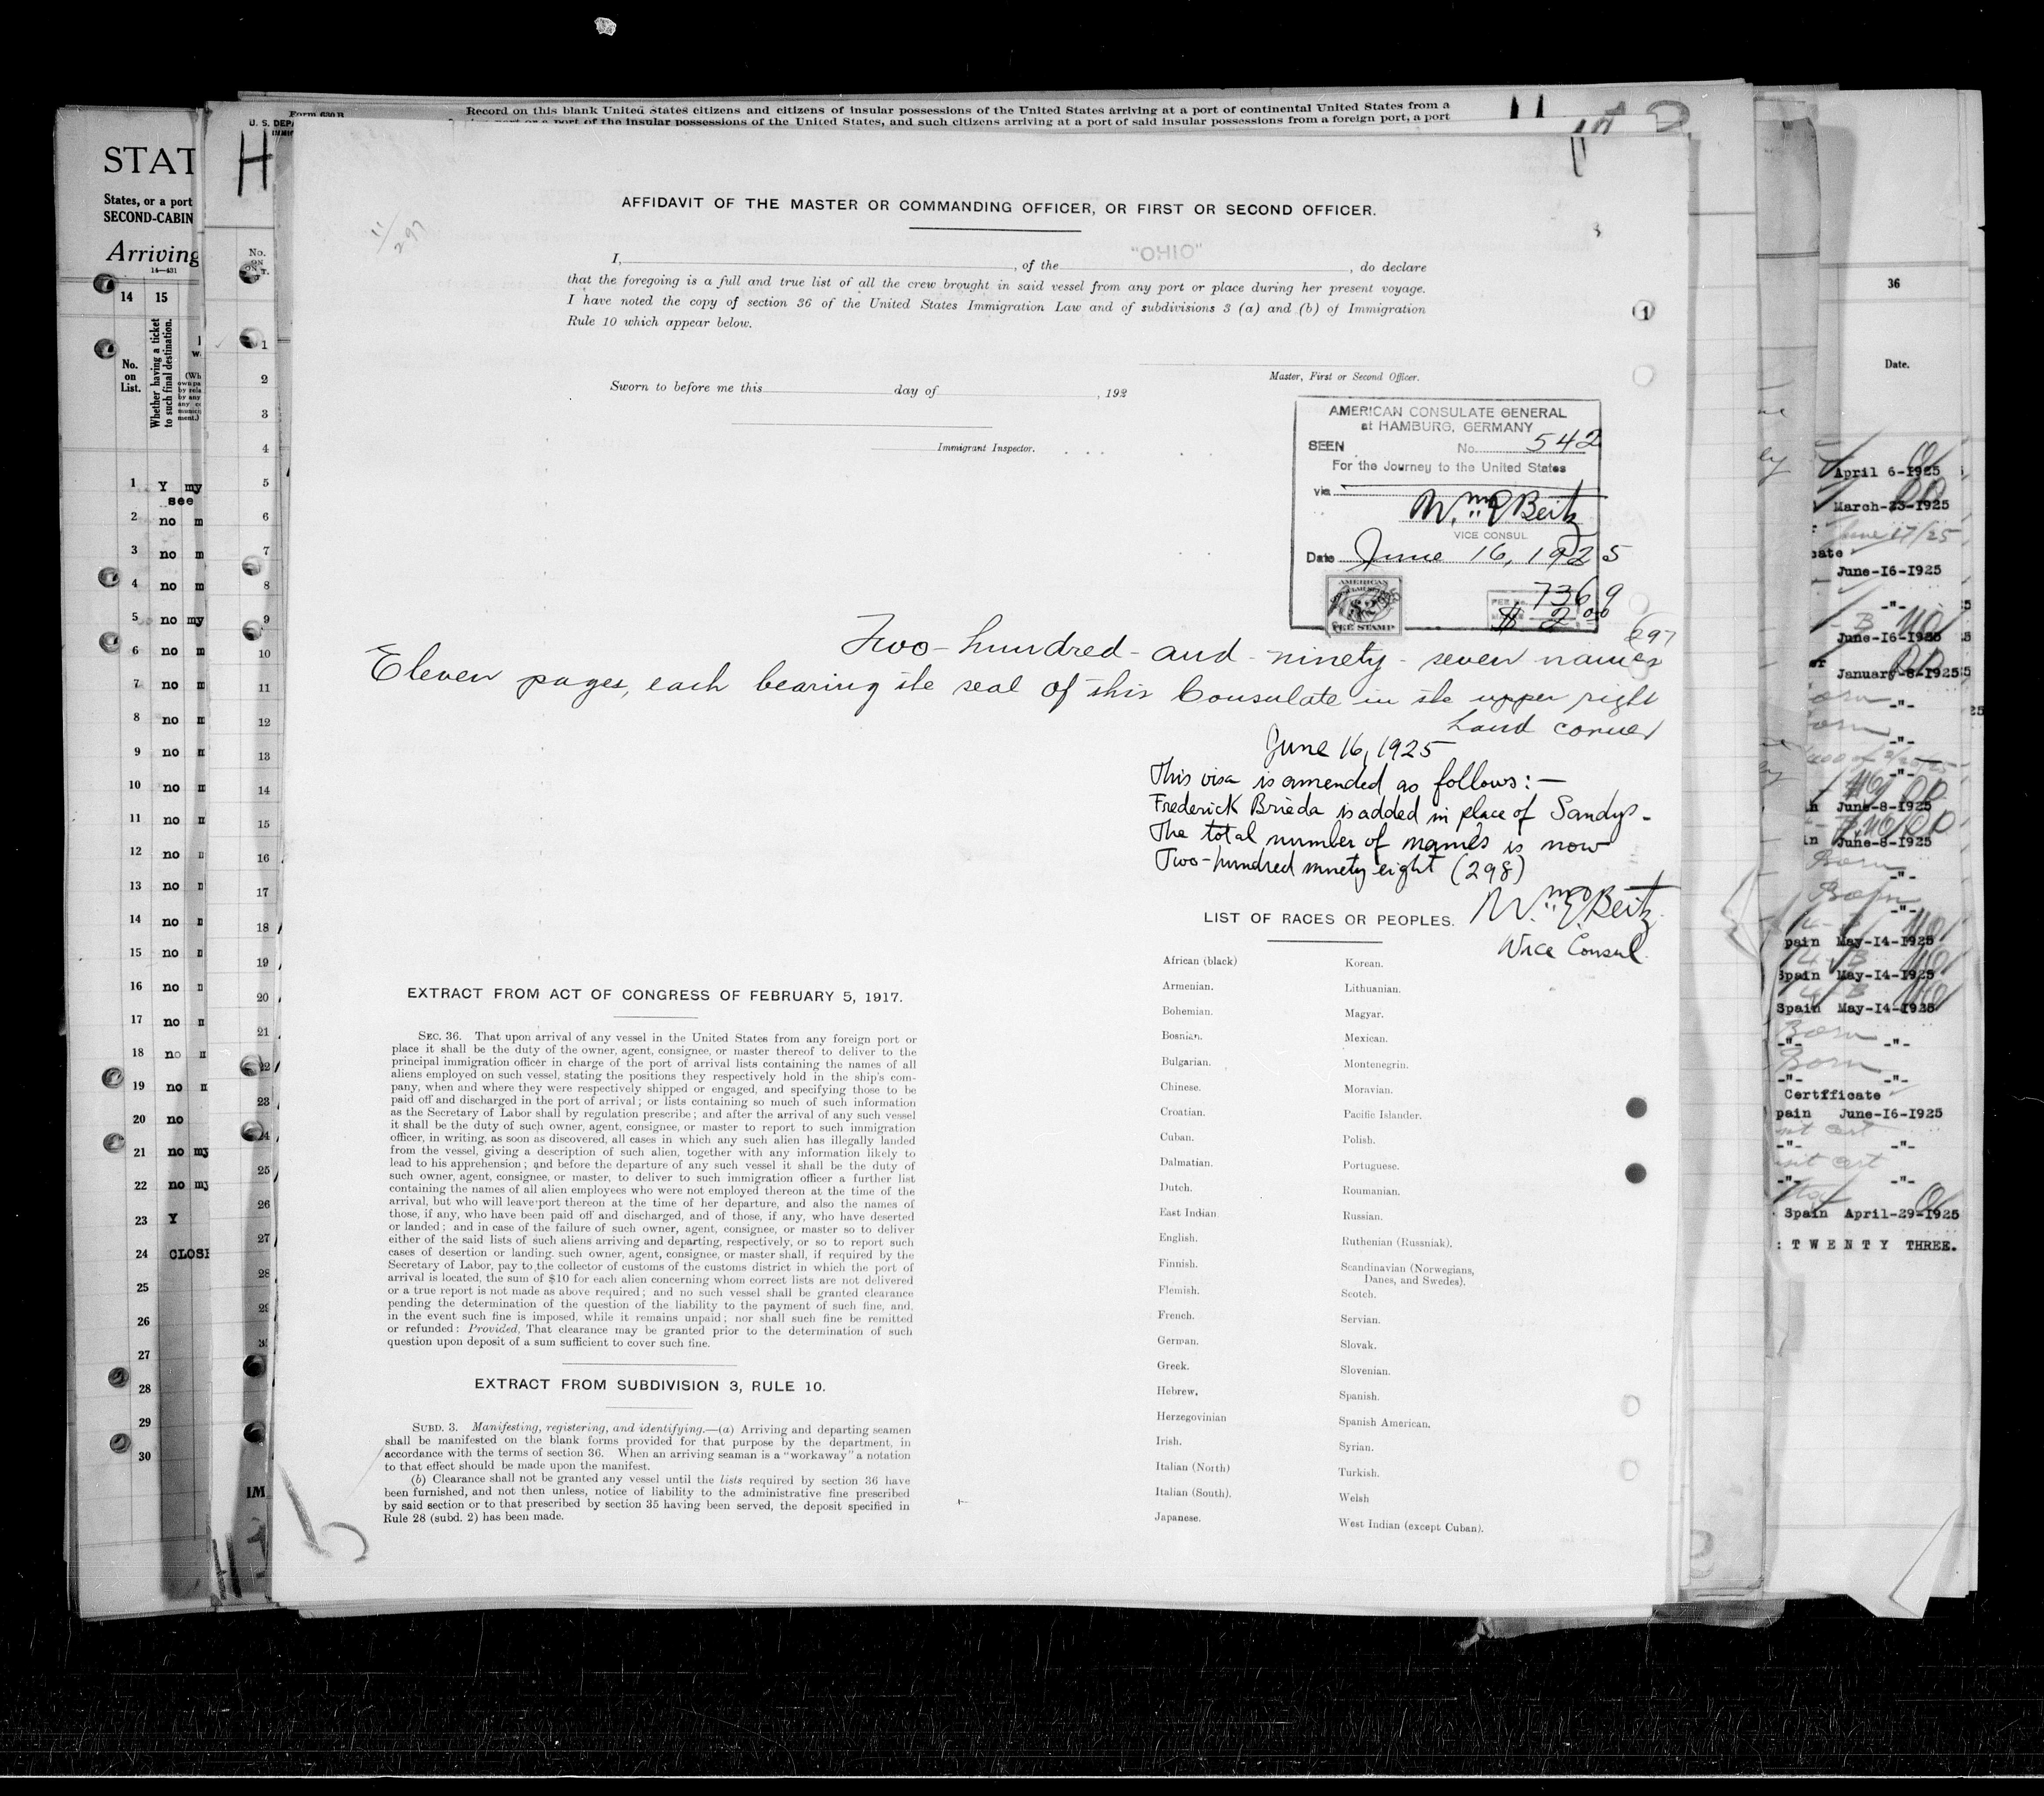 Record on this blank United States citizens and citizens of insular possessions of the United States arriving at a port of continental United States from a
port of the insular possessions of the United States, and such citizens arriving at a port of said insular possessions from a foreign port, a port
Form 630 B
U. S. DEPA
STAT
States, or a port
SECOND-CABIN
Arriving
14—431
14 15
No. on List.
Whether having a ticket to such final destination.
1 Y my
see
2 no m
3 no m
4 no m
5 no my
6 no m
7 no m
8 no m
9 no m
10 no m
11 no m
12 no
13 no
14 no
15 no
16 no
17 no
18 no
19 no
20 no
21 no my
22 no my
23 Y
24 CLOSE
25
26
27
28
29
30
H
No.
1
2
3
4
5
6
7
8
9
10
11
12
13
14
15
16
17
18
19
20
21
22
23
24
25
26
27
28
IM
AFFIDAVIT OF THE MASTER OR COMMANDING OFFICER, OR FIRST OR SECOND OFFICER.
11/297
I, , of the "OHIO" , do declare
that the foregoing is a full and true list of all the crew brought in said vessel from any port or place during her present voyage.
I have noted the copy of section 36 of the United States Immigration Law and of subdivisions 3 (a) and (b) of Immigration
Rule 10 which appear below.
Master, First or Second Officer.
Sworn to before me this day of , 192
Immigrant Inspector.
1
AMERICAN CONSULATE GENERAL
at HAMBURG, GERMANY
SEEN No. 542
For the Journey to the United States
via
Wm E Beitz
VICE CONSUL
Date June 16, 1925
AMERICAN
$2
FEE STAMP
7369
$ 2.00
297
Two-hundred-and-ninety-seven names
Eleven pages, each bearing the seal of this Consulate in the upper right
hand corner
June 16, 1925
This visa is amended as follows:—
Frederick Brieda is added in place of Sandys-
The total number of names is now
Two-hundred ninety eight (298)
Wm E Beitz
Vice Consul
EXTRACT FROM ACT OF CONGRESS OF FEBRUARY 5, 1917.
SEC. 36. That upon arrival of any vessel in the United States from any foreign port or
place it shall be the duty of the owner, agent, consignee, or master thereof to deliver to the
principal immigration officer in charge of the port of arrival lists containing the names of all
aliens employed on such vessel, stating the positions they respectively hold in the ship's com-
pany, when and where they were respectively shipped or engaged, and specifying those to be
paid off and discharged in the port of arrival; or lists containing so much of such information
as the Secretary of Labor shall by regulation prescribe; and after the arrival of any such vessel
it shall be the duty of such owner, agent, consignee, or master to report to such immigration
officer, in writing, as soon as discovered, all cases in which any such alien has illegally landed
from the vessel, giving a description of such alien, together with any information likely to
lead to his apprehension; and before the departure of any such vessel it shall be the duty of
such owner, agent, consignee, or master, to deliver to such immigration officer a further list
containing the names of all alien employees who were not employed thereon at the time of the
arrival, but who will leave port thereon at the time of her departure, and also the names of
those, if any, who have been paid off and discharged, and of those, if any, who have deserted
or landed; and in case of the failure of such owner, agent, consignee, or master so to deliver
either of the said lists of such aliens arriving and departing, respectively, or so to report such
cases of desertion or landing. such owner, agent, consignee, or master shall, if required by the
Secretary of Labor, pay to the collector of customs of the customs district in which the port of
arrival is located, the sum of $10 for each alien concerning whom correct lists are not delivered
or a true report is not made as above required; and no such vessel shall be granted clearance
pending the determination of the question of the liability to the payment of such fine, and,
in the event such fine is imposed, while it remains unpaid; nor shall such fine be remitted
or refunded: Provided, That clearance may be granted prior to the determination of such
question upon deposit of a sum sufficient to cover such fine.
EXTRACT FROM SUBDIVISION 3, RULE 10.
SUBD. 3. Manifesting, registering, and identifying.—(a) Arriving and departing seamen
shall be manifested on the blank forms provided for that purpose by the department, in
accordance with the terms of section 36. When an arriving seaman is a "workaway" a notation
to that effect should be made upon the manifest.
(b) Clearance shall not be granted any vessel until the lists required by section 36 have
been furnished, and not then unless, notice of liability to the administrative fine prescribed
by said section or to that prescribed by section 35 having been served, the deposit specified in
Rule 28 (subd. 2) has been made.
LIST OF RACES OR PEOPLES.
African (black)
Armenian.
Bohemian.
Bosnian.
Bulgarian.
Chinese.
Croatian.
Cuban.
Dalmatian.
Dutch.
East Indian
English.
Finnish.
Flemish.
French.
German.
Greek.
Hebrew.
Herzegovinian
Irish.
Italian (North)
Italian (South).
Japanese.
Korean.
Lithuanian.
Magyar.
Mexican.
Montenegrin.
Moravian.
Pacific Islander.
Polish.
Portuguese.
Roumanian.
Russian.
Ruthenian (Russniak).
Scandinavian (Norwegians,
Danes, and Swedes).
Scotch.
Servian.
Slovak.
Slovenian.
Spanish.
Spanish American.
Syrian.
Turkish.
Welsh
West Indian (except Cuban).
36
Date.
April 6-1925
March-23-1925
June 17/25
June-16-1925
-"-
June-16-1925
January-8-1925
-"-
-"-
-"-
June-8-1925
June-8-1925
Born
-"-
Born
-"-
pain May-14-1925
Spain May-14-1925
Spain May-14-1925
Born
-"- -"-
Born
-"- -"-
Certificate
pain June-16-1925
-"- -"-
-"- -"-
Spain April-29-1925
: TWENTY THREE.